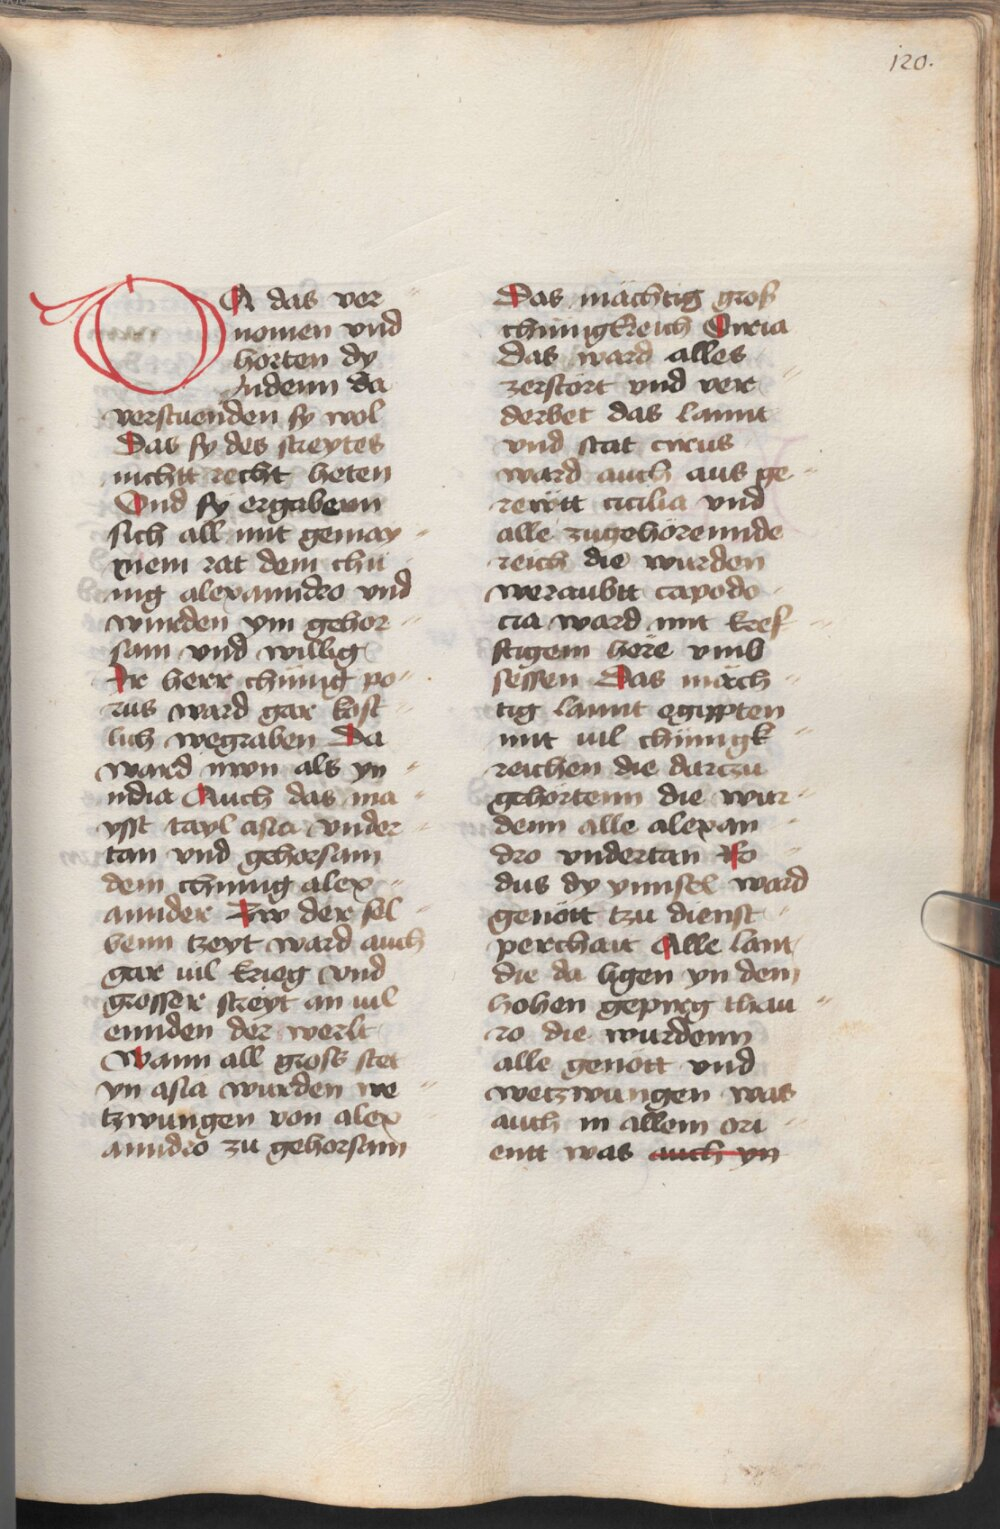 120.
DA das ver
nomen vnd
horten dy
Indenn da
verstuenden sy wol
Das sy des streytes
nichtt recht heten
Vnd sy ergabenn
sich all mit gemay
niem rat dem chu
nig alexanndro vnd
wurden ym gehor
sam vnd willig
Ir herr chunig po
rus ward gar kost
lich wegraben Da
ward nwn als yn
india Auch das ma
ysst tayl asia vnder
tan vnd gehorsam
dem chunig alex
annder Zw der sel
benn tzeyt ward auch
gar uil krieg vnd
grosser streyt an uil
ennden der werlt
Wann all gross stet
yn asia wurden we
tzwungen von alex
anndro zu gehorsam
Das mächtig gros
chunigkreich Siria
das ward alles
zerstört vnd ver
derbet das lannt
vnd stat cirus
ward auch aus ge
rewtt cicilia vnd
alle zugehörennde
reich die wurden
weraubtt capodo
cia ward mit kref
ftigem here vmb
sessen Das mäch
tig lannt egippten
mit uil chunigk
reichen die dartzu
gehortenn die wur
denn alle alexan
dro vndertan Ro
dus dy ynnsel ward
genött tzu dienst
perchait Alle lant
die da ligen yn dem
hohen gepirg thau
ro die wurdenn
alle genött vnd
wetzwungen was
auch in allem ori
entt was auch yn